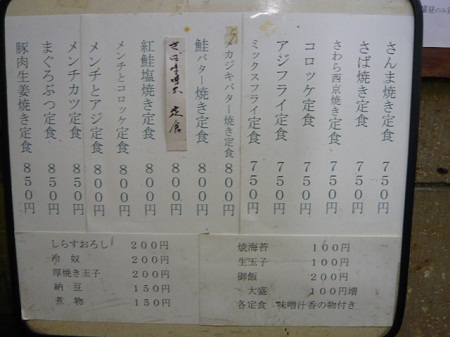 さんま焼き定食 750円
さば焼き定食 750円
さわら西京焼き定食 750円
コロッケ定食 750円
アジフライ定食 750円
ミックスフライ定食 750円
メカジキバター焼き定食 800円
鮭バター焼き定食 800円
定食 800円
紅鮭塩焼き定食 800円
メンチとコロッケ定食 800円
メンチとアジ定食 800円
メンチカツ定食 850円
まぐろぶつ定食 850円
豚肉生姜焼き定食 850円
しらすおろし 200円
冷奴 200円
厚焼き玉子 200円
納豆 150円
煮物 150円
焼海苔 100円
生玉子 100円
御飯 200円
大盛 100円増
各定食 味噌汁香の物付き